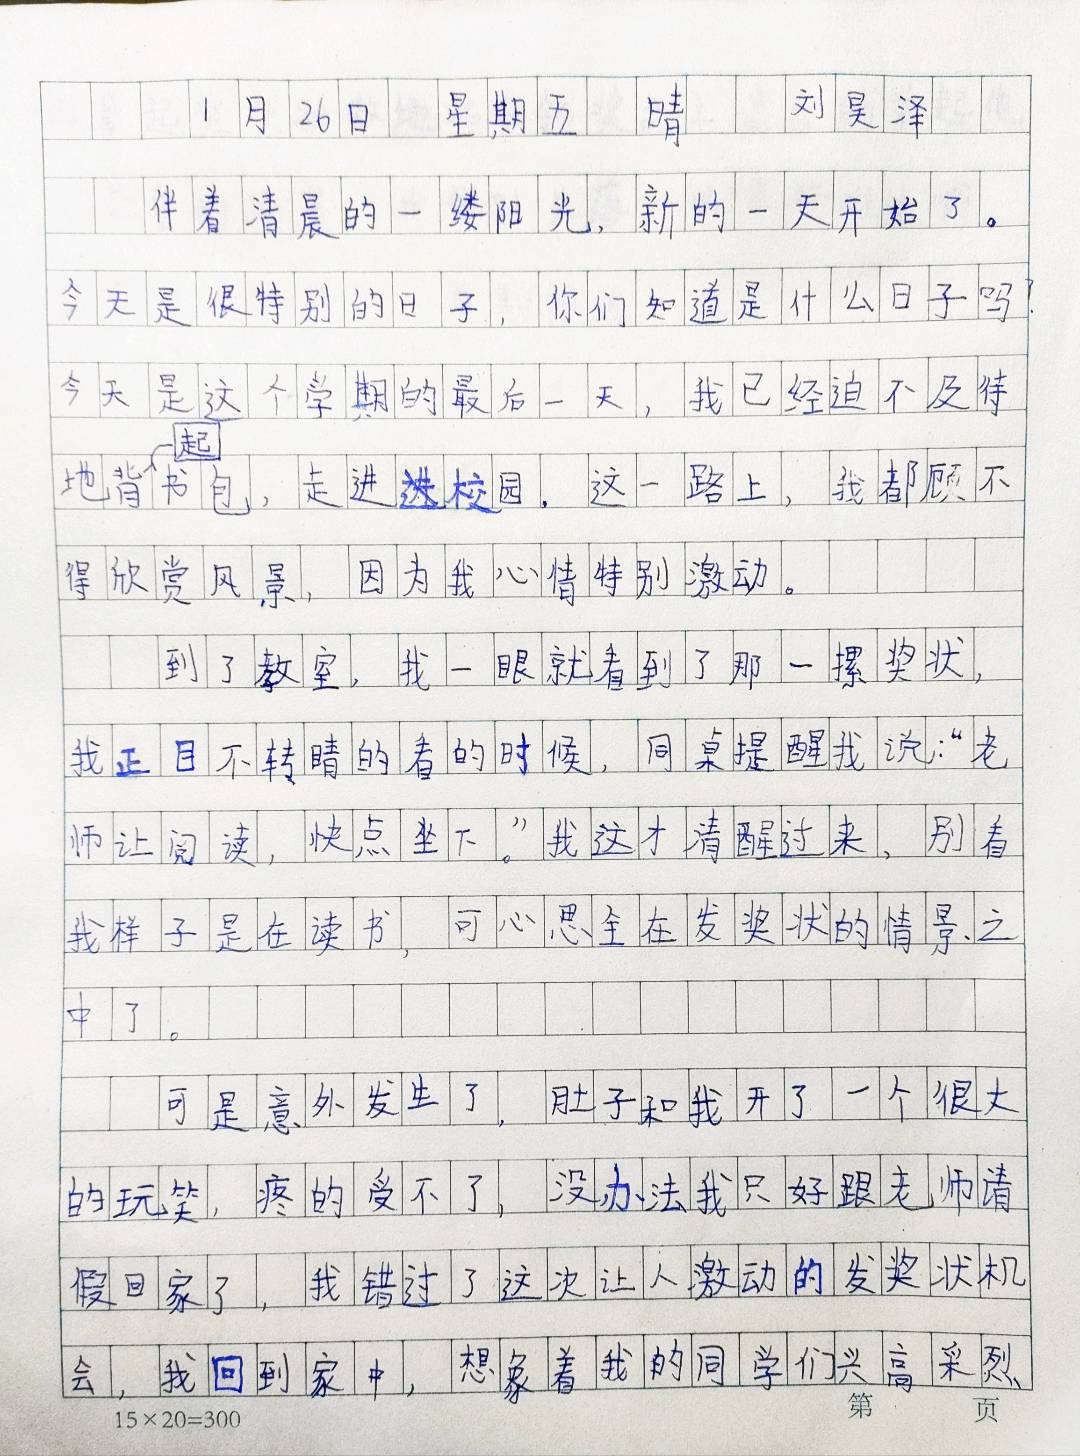 1月26日 星期五 晴 刘昊泽
伴着清晨的一缕阳光，新的一天开始了。
今天是很特别的日子，你们知道是什么日子吗？
今天是这个学期的最后一天，我已经迫不及待
起
地背书包，走进校园。这一路上，我都顾不
得欣赏风景，因为我心情特别激动。
到了教室，我一眼就看到了那一摞奖状，
我正目不转睛的看的时候，同桌提醒我说：“老
师让阅读，快点坐下。”我这才清醒过来，别看
我样子是在读书，可心思全在发奖状的情景之
中了。
可是意外发生了，肚子和我开了一个很大
的玩笑，疼的受不了，没办法我只好跟老师请
假回家了，我错过了这次让人激动的发奖状机
会，我回到家中，想象着我的同学们兴高采烈
15×20=300
第 页